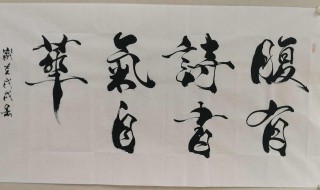 腹有
詩書
氣自
華